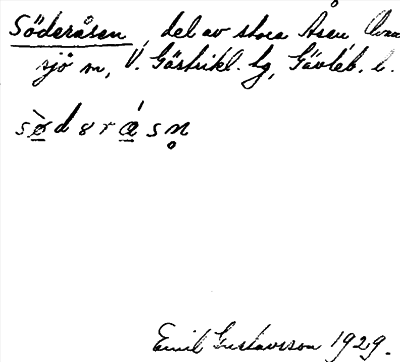 Söderåsen, del av stora Åsen Ovan
sjö sn, V. Gästrikl. hg, Gävleb. l.
sø̀dərásn̥
Emil Gustavsson 1929.